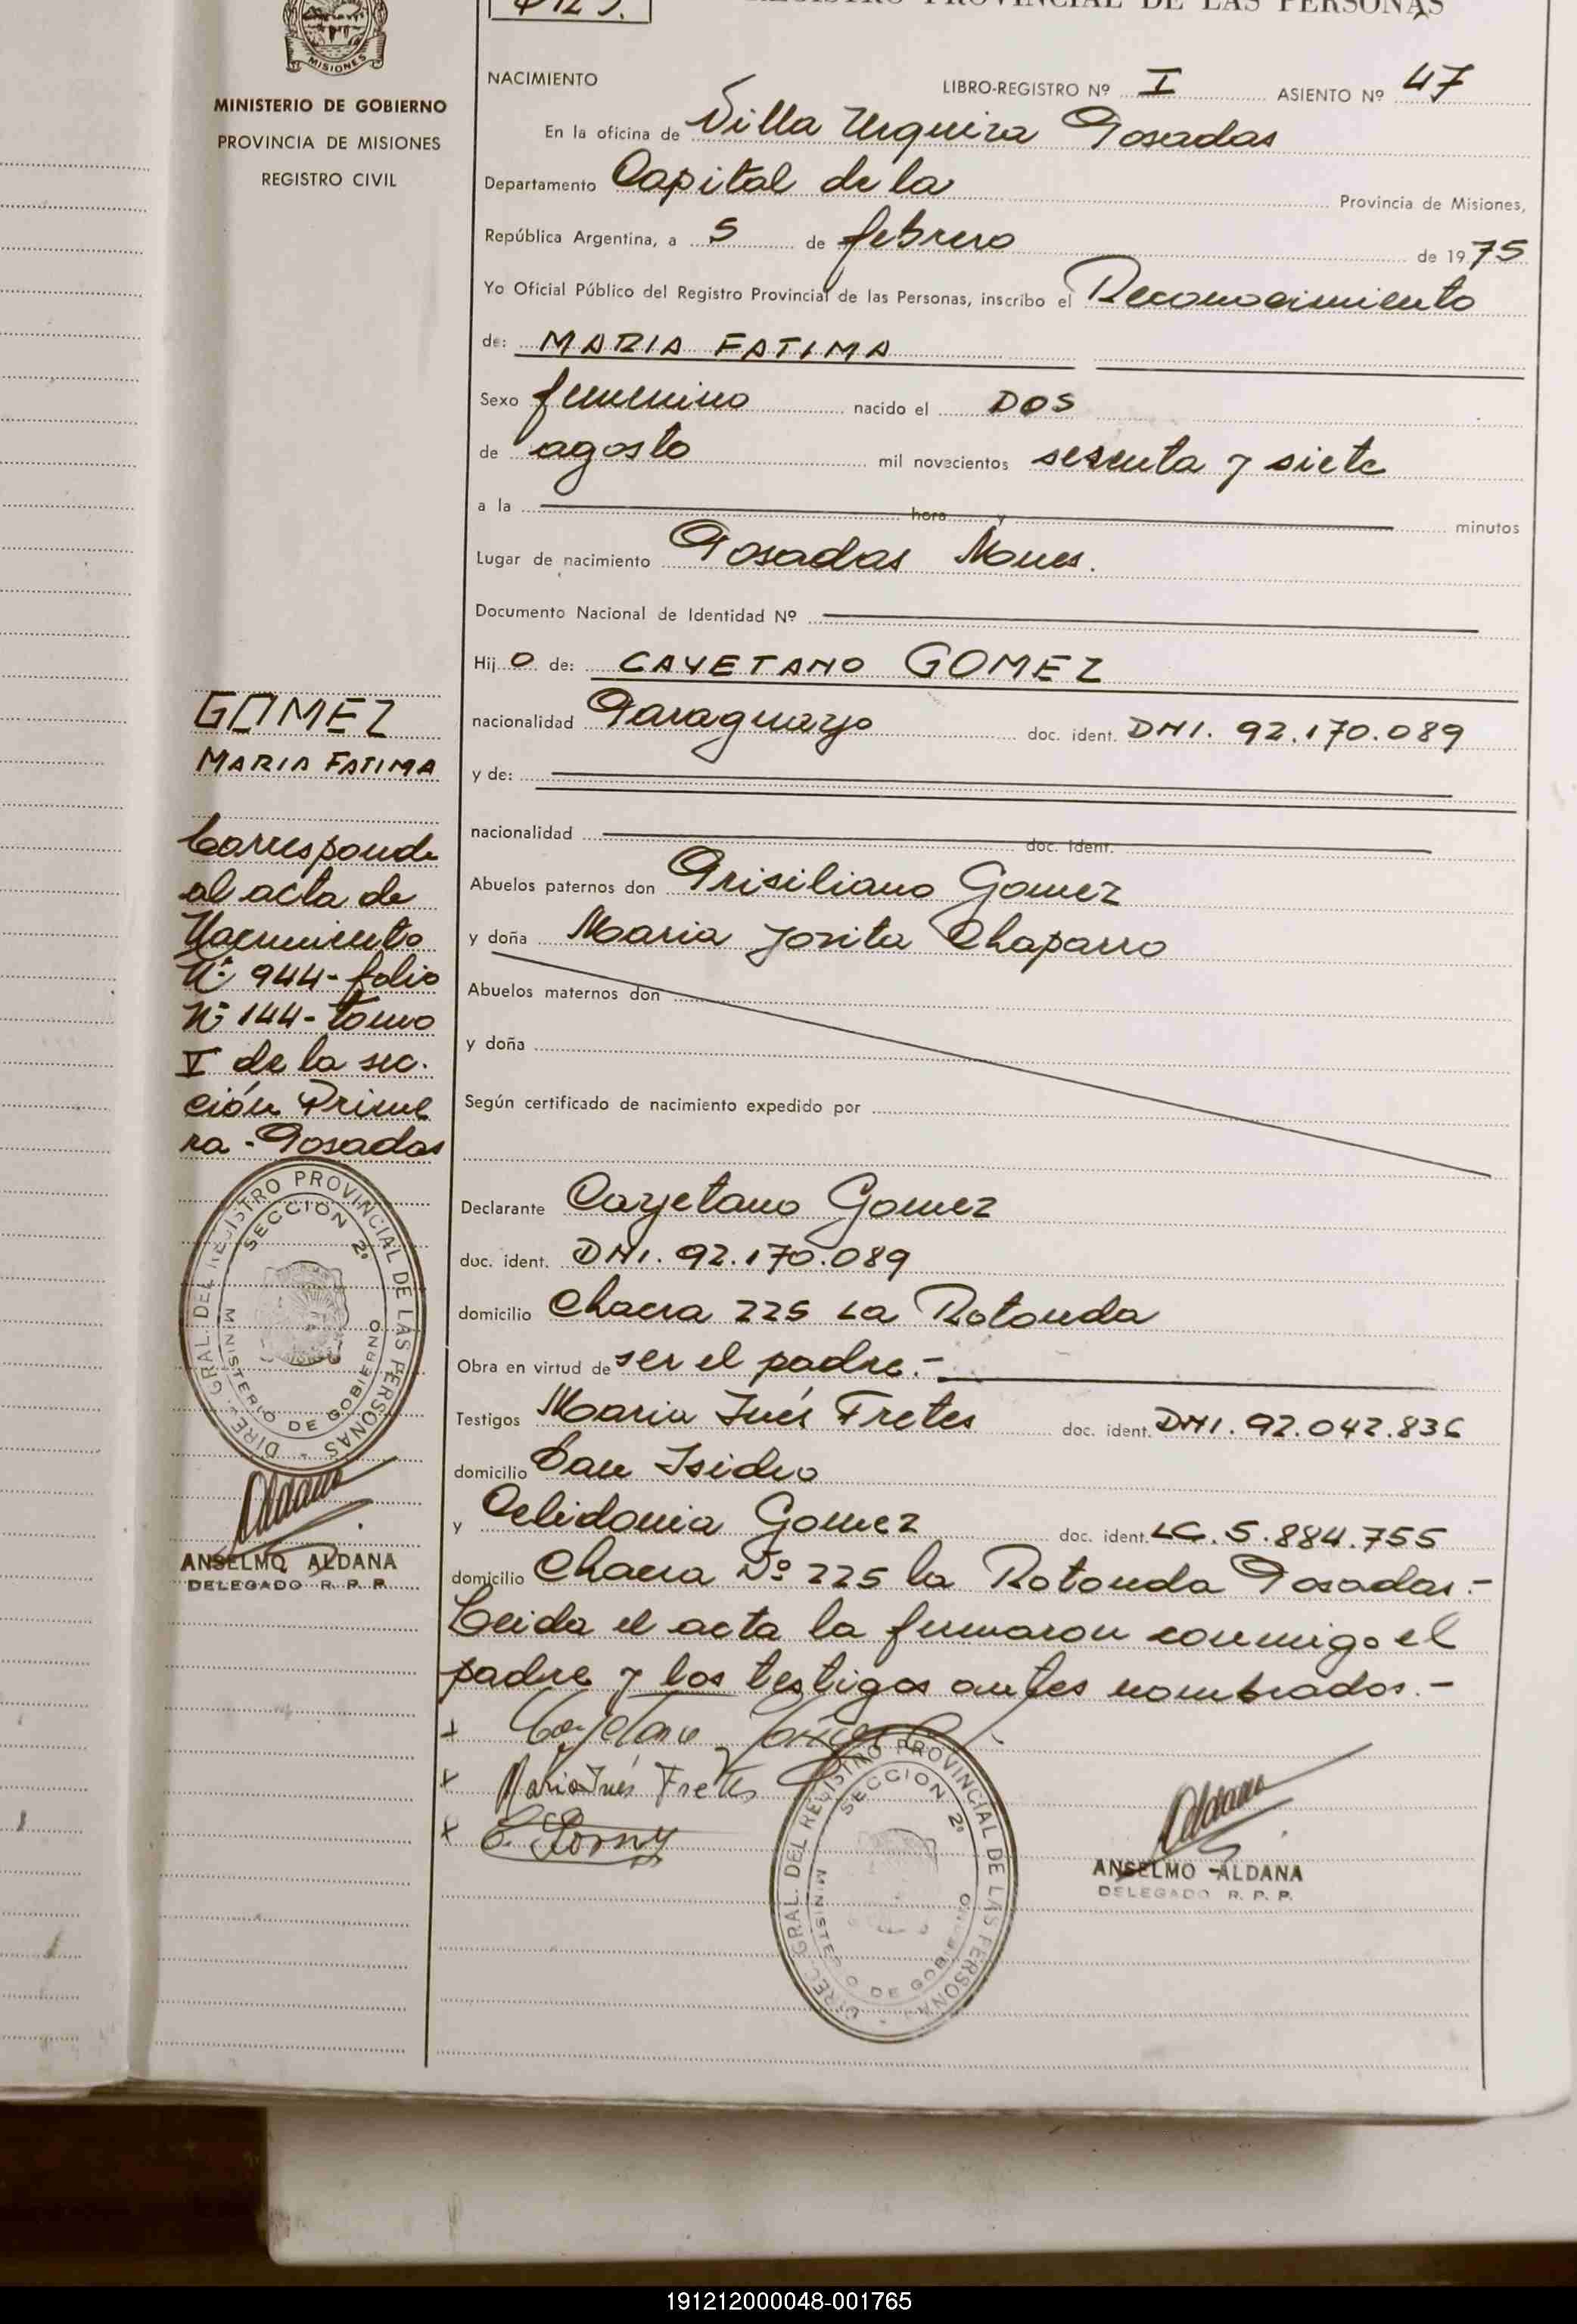 REGISTRO PROVINCIAL DE LAS PERSONAS
MISIONES
MINISTERIO DE GOBIERNO
PROVINCIA DE MISIONES
REGISTRO CIVIL
NACIMIENTO LIBRO-REGISTRO Nº I ASIENTO Nº 47
En la oficina de Villa Urquiza Posadas
Departamento Capital de la Provincia de Misiones,
República Argentina, a 5 de febrero de 1975
Yo Oficial Público del Registro Provincial de las Personas, inscribo el Reconocimiento
de: MARIA FATIMA
Sexo femenino nacido el DOS
de agosto mil novecientos sesenta y siete
a la hora y minutos
Lugar de nacimiento Posadas Mnes.
Documento Nacional de Identidad Nº
Hij o de: CAYETANO GOMEZ
nacionalidad Paraguayo doc. ident. DNI. 92.170.089
y de:
nacionalidad doc. ident.
Abuelos paternos don Prisiliano Gomez
y doña Maria Josita Chaparro
Abuelos maternos don
y doña
Según certificado de nacimiento expedido por
Declarante Cayetano Gomez
doc. ident. DNI. 92.170.089
domicilio Chacra 225 La Rotonda
Obra en virtud de ser el padre.-
Testigos Maria Inés Fretes doc. ident. DNI. 92.042.836
domicilio San Isidro
y Celidonia Gomez doc. ident. LC. 5.884.755
domicilio Chacra Nº 225 la Rotonda Posadas.-
Leida el acta la firmaron conmigo el
padre y los testigos antes nombrados.-
x Cayetano Gomez
x Maria Inés Fretes
x
GOMEZ
MARIA FATIMA
Corresponde
al acta de
Nacimiento
Nº 944-folio
Nº 144-tomo
I de la sec.
ción Prime
ra-Posadas
DIREC. GRAL. DEL REGISTRO PROVINCIAL DE LAS PERSONAS
SECCION 2º
MINISTERIO DE GOBIERNO
Aldana
ANSELMO ALDANA
DELEGADO R. P. P.
DIREC. GRAL. DEL REGISTRO PROVINCIAL DE LAS PERSONAS
SECCION 2º
MINISTERIO DE GOBIERNO
Aldana
ANSELMO ALDANA
DELEGADO R. P. P.
191212000048-001765